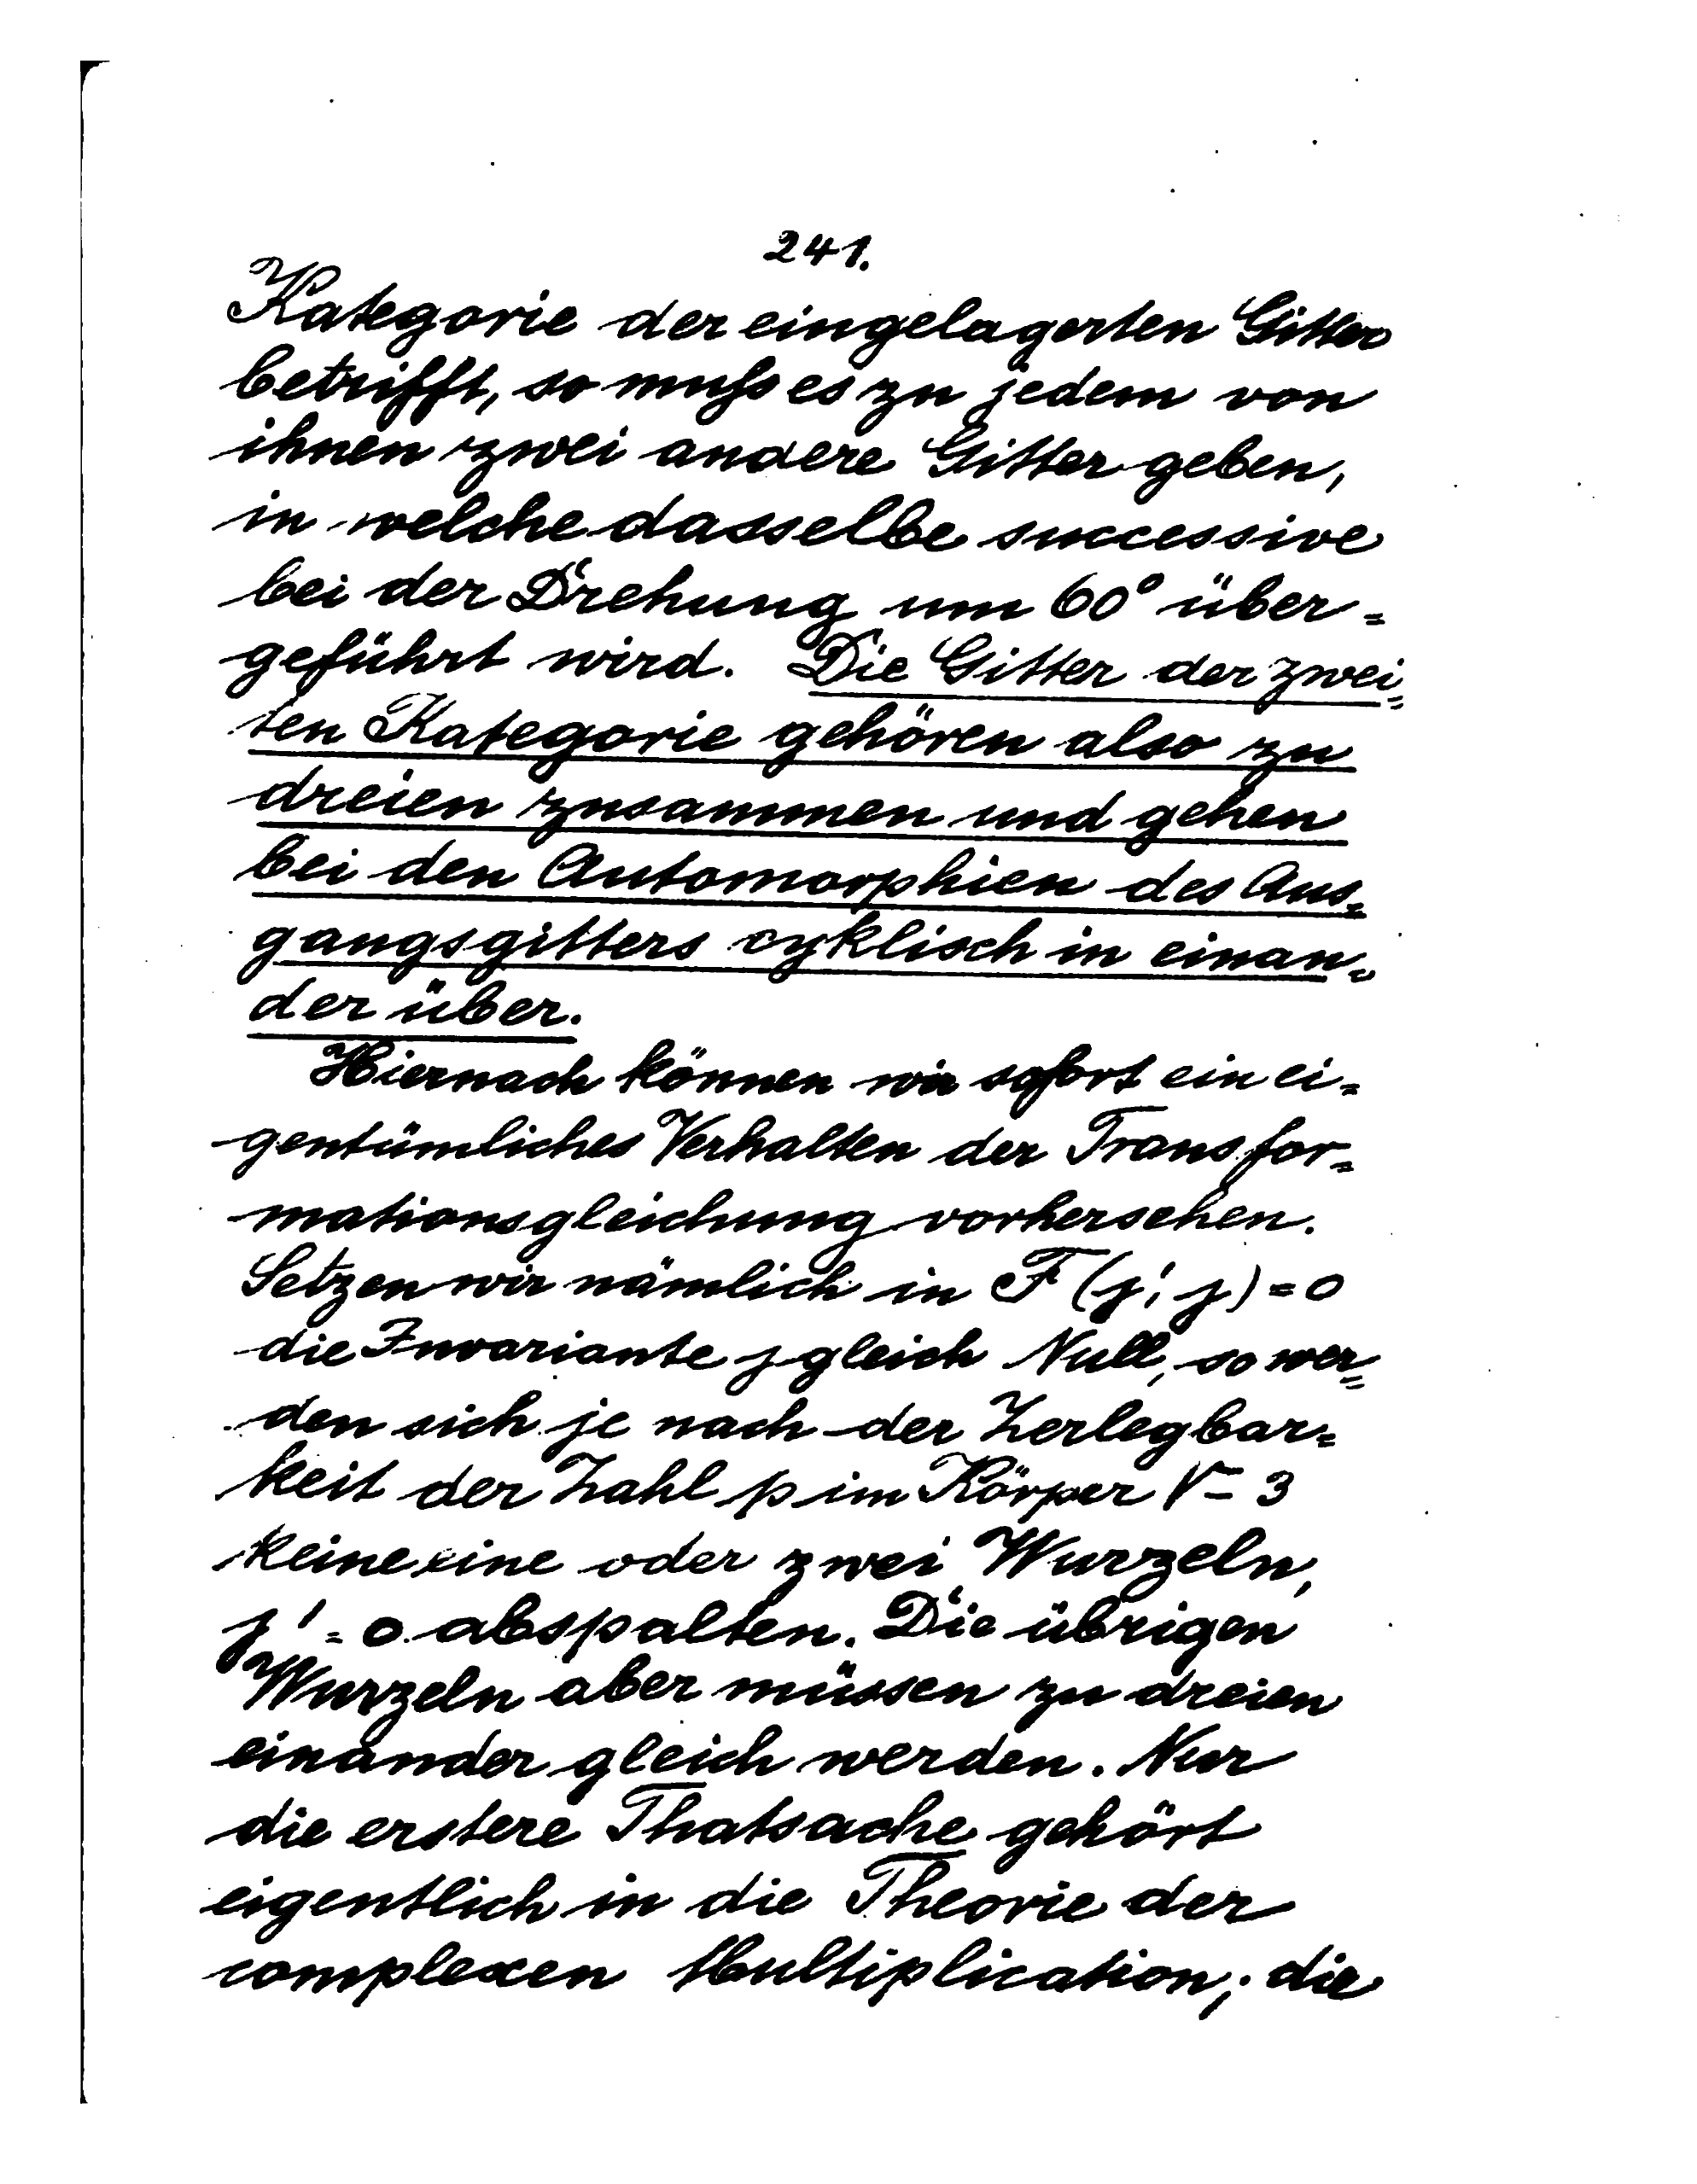 241.
Kategorie der eingelagerten Gitter
betrifft, so muß es zu jedem von
ihnen zwei andere Gitter geben,
in welche dasselbe successive
bei der Drehung um 60° über=
geführt wird. Die Gitter der zwei=
ten Kategorie gehören also zu
dreien zusammen und gehen
bei den Automorphien des Aus=
gangsgitters cyklisch in einan=
der über.
Hiernach können wir sofort ein ei=
gentümliches Verhalten der Transfor=
mationsgleichung vorhersehen.
Setzen wir nämlich in F(j', j) = 0
die Invariante j gleich Null, so wer=
den sich je nach der Zerlegbar=
keit der Zahl p im Körper √-3
keine eine oder zwei Wurzeln,
j' = 0 abspalten. Die übrigen
Wurzeln aber müssen zu dreien
einander gleich werden. Nur
die erstere Thatsache gehört
eigentlich in die Theorie der
complexen Multiplication; die